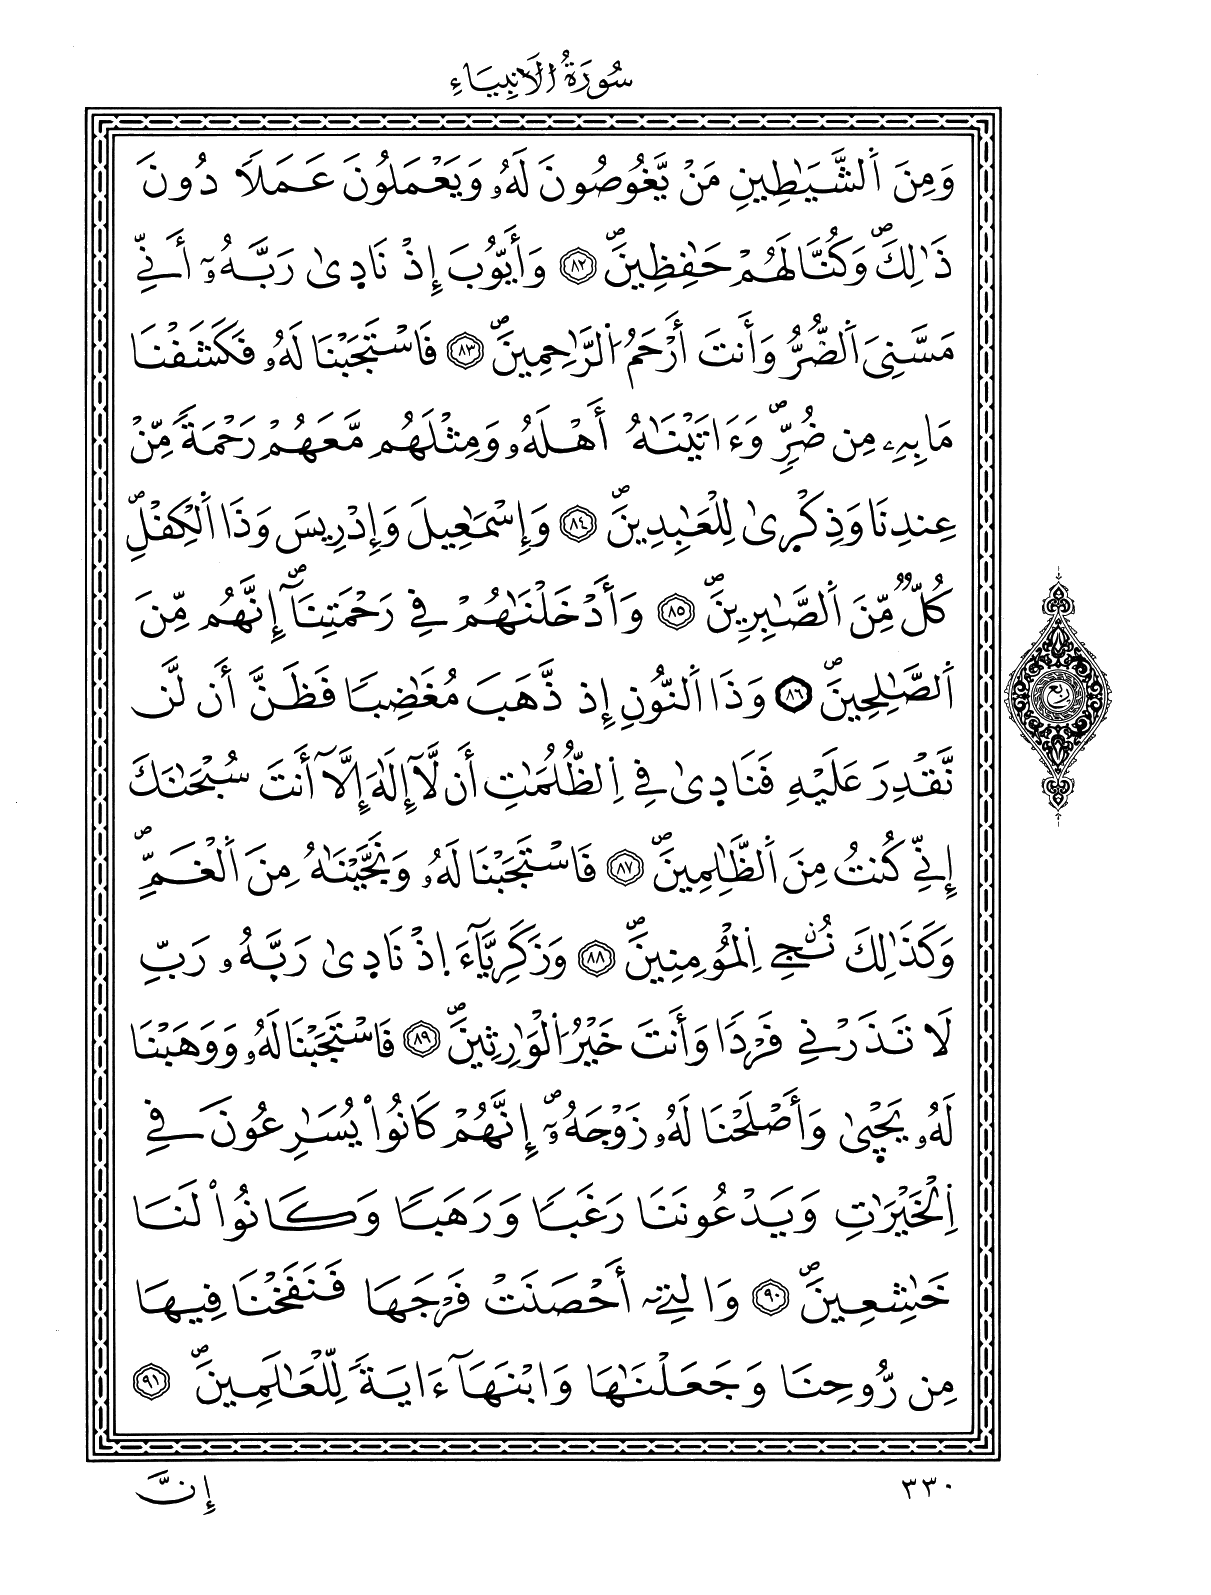 سُورَةُ الْأَنبِيَاءِ
وَمِنَ اَ۬لشَّيَٰطِينِ مَنْ يَّغُوصُونَ لَهُۥ وَيَعْمَلُونَ عَمَلاٗ دُونَ
ذَٰلِكَۖ وَكُنَّا لَهُمْ حَٰفِظِينَۖ ٨٢ وَأَيُّوبَ إِذْ نَادٜىٰ رَبَّهُۥٓ أَنِّے
مَسَّنِيَ اَ۬لضُّرُّ وَأَنتَ أَرْحَمُ اُ۬لرَّٰحِمِينَۖ ٨٣ فَاسْتَجَبْنَا لَهُۥ فَكَشَفْنَا
مَا بِهِۦ مِن ضُرّٖۖ وَءَاتَيْنَٰهُ أَهْلَهُۥ وَمِثْلَهُم مَّعَهُمْ رَحْمَةٗ مِّنْ
عِندِنَا وَذِكْرٜىٰ لِلْعَٰبِدِينَۖ ٨٤ وَإِسْمَٰعِيلَ وَإِدْرِيسَ وَذَا اَ۬لْكِفْلِۖ
كُلّٞ مِّنَ اَ۬لصَّٰبِرِينَۖ ٨٥ وَأَدْخَلْنَٰهُمْ فِے رَحْمَتِنَآۖ إِنَّهُم مِّنَ
اَ۬لصَّٰلِحِينَۖ ٨٦ وَذَا اَ۬لنُّونِ إِذ ذَّهَبَ مُغَٰضِباٗ فَظَنَّ أَن لَّن
نَّقْدِرَ عَلَيْهِ فَنَادٜىٰ فِے اِ۬لظُّلُمَٰتِ أَن لَّآ إِلَٰهَ إِلَّآ أَنتَ سُبْحَٰنَكَ
إِنِّے كُنتُ مِنَ اَ۬لظَّٰلِمِينَۖ ٨٧ فَاسْتَجَبْنَا لَهُۥ وَنَجَّيْنَٰهُ مِنَ اَ۬لْغَمِّۖ
وَكَذَٰلِكَ نُۨجِے اِ۬لْمُؤْمِنِينَۖ ٨٨ وَزَكَرِيَّآءَ اِ۪ذْ نَادٜىٰ رَبَّهُۥ رَبِّ
لَا تَذَرْنِے فَرْداٗ وَأَنتَ خَيْرُ اُ۬لْوَٰرِثِينَۖ ٨٩ فَاسْتَجَبْنَا لَهُۥ وَوَهَبْنَا
لَهُۥ يَحْيٜىٰ وَأَصْلَحْنَا لَهُۥ زَوْجَهُۥٓۖ إِنَّهُمْ كَانُواْ يُسَٰرِعُونَ فِے
اِ۬لْخَيْرَٰتِ وَيَدْعُونَنَا رَغَباٗ وَرَهَباٗ وَكَانُواْ لَنَا
خَٰشِعِينَۖ ٩٠ وَالتِےٓ أَحْصَنَتْ فَرْجَهَا فَنَفَخْنَا فِيهَا
مِن رُّوحِنَا وَجَعَلْنَٰهَا وَابْنَهَآ ءَايَةٗ لِّلْعَٰلَمِينَۖ ٩١
ربع
٣٣٠
إِنَّ